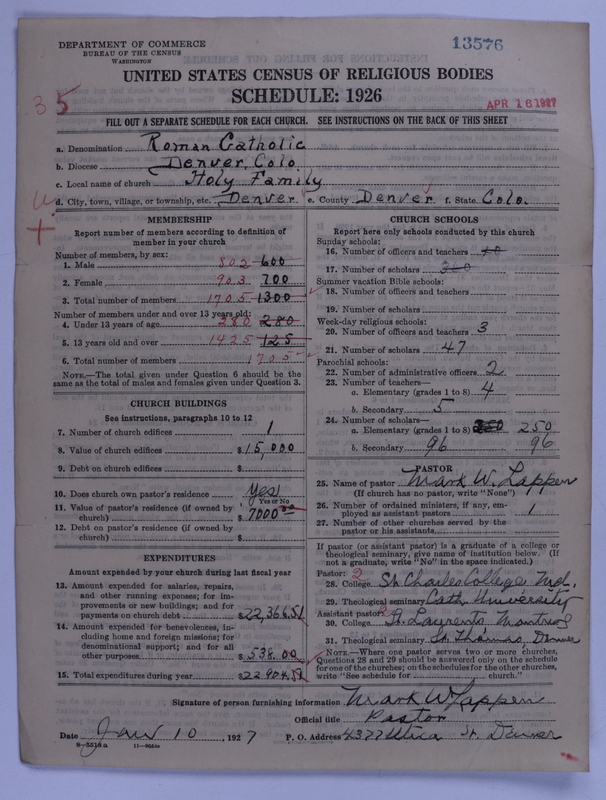 DEPARTMENT OF COMMERCE
BUREAU OF THE CENSUS
WASHINGTON
13576
UNITED STATES CENSUS OF RELIGIOUS BODIES
SCHEDULE: 1926
35
APR 16 1927
FILL OUT A SEPARATE SCHEDULE FOR EACH CHURCH. SEE INSTRUCTIONS ON THE BACK OF THIS SHEET
a. Denomination Roman Catholic
b. Diocese Denver, Colo.
c. Local name of church Holy Family
d. City, town, village, or township, etc. Denver e. County Denver f. State Colo.
MEMBERSHIP
Report number of members according to definition of member in your church
Number of members, by sex:
1. Male 802 600
2. Female 903 700
3. Total number of members 1705 1300
Number of members under and over 13 years old:
4. Under 13 years of age 280 280
5. 13 years old and over 1425 125
6. Total number of members 1705
NOTE.—The total given under Question 6 should be
same as the total of males and females given under Question 3.
CHURCH BUILDINGS
See instructions, paragraphs 10 to 12
7. Number of church edifices 1
8. Value of church edifices $15,000
9. Debt on church edifices $
10. Does church own pastor's residence Yes
Yes or No
11. Value of pastor's residence (if owned by
church) $7000.00
12. Debt on pastor's residence (if owned by
church) $
EXPENDITURES
Amount expended by your church during last fiscal year
13. Amount expended for salaries, repairs,
and other running expenses; for im-
provements or new buildings; and for
payments on church debt $22,366.51
14. Amount expended for benevolences, in-
cluding home and foreign missions; for
denominational support; and for all
other purposes $538.00
15. Total expenditures during year $22904.51
CHURCH SCHOOLS
Report here only schools conducted by this church
Sunday schools:
16. Number of officers and teachers 10
17. Number of scholars 300
Summer vacation Bible schools:
18. Number of officers and teachers
19. Number of scholars
Week-day religious schools:
20. Number of officers and teachers 3
21. Number of scholars 47
Parochial schools:
22. Number of administrative officers 2
23. Number of teachers—
a. Elementary (grades 1 to 8) 4
b. Secondary 5
24. Number of scholars—
a. Elementary (grades 1 to 8) 250 250
b. Secondary 96 96
PASTOR
25. Name of pastor Mark W. Lappen
(If church has no pastor, write "None")
26. Number of ordained ministers, if any, em-
ployed as assistant pastors 1
27. Number of other churches served by the
pastor or his assistants
If pastor (or assistant pastor) is a graduate of a college or
theological seminary, give name of institution below. (If
not a graduate, write "No" in the space indicated.)
Pastor: 2
28. College St. Charles College, Md.
29. Theological seminary Cath. University
Assistant pastor:
30. College St. Laurents, Montreal
31. Theological seminary St. Thomas, Denver
NOTE.—Where one pastor serves two or more churches,
Questions 28 and 29 should be answered only on the schedule
for one of the churches; on the schedules for the other churches,
write "See schedule for church."
Signature of person furnishing information Mark W Lappen
Official title Pastor
Date Jan 10, 1927 P. O. Address 4377 Utica St. Denver
8—5518a 11—9046